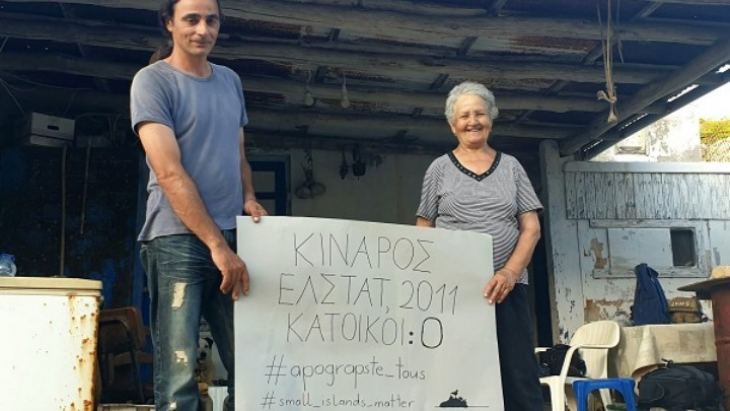 ΚΙΝΑΡΟΣ
ΕΛΣΤΑΤ, 2011
ΚΑΤΟΙΚΟΙ: 0
#apograpste_tous
#small_islands_matter